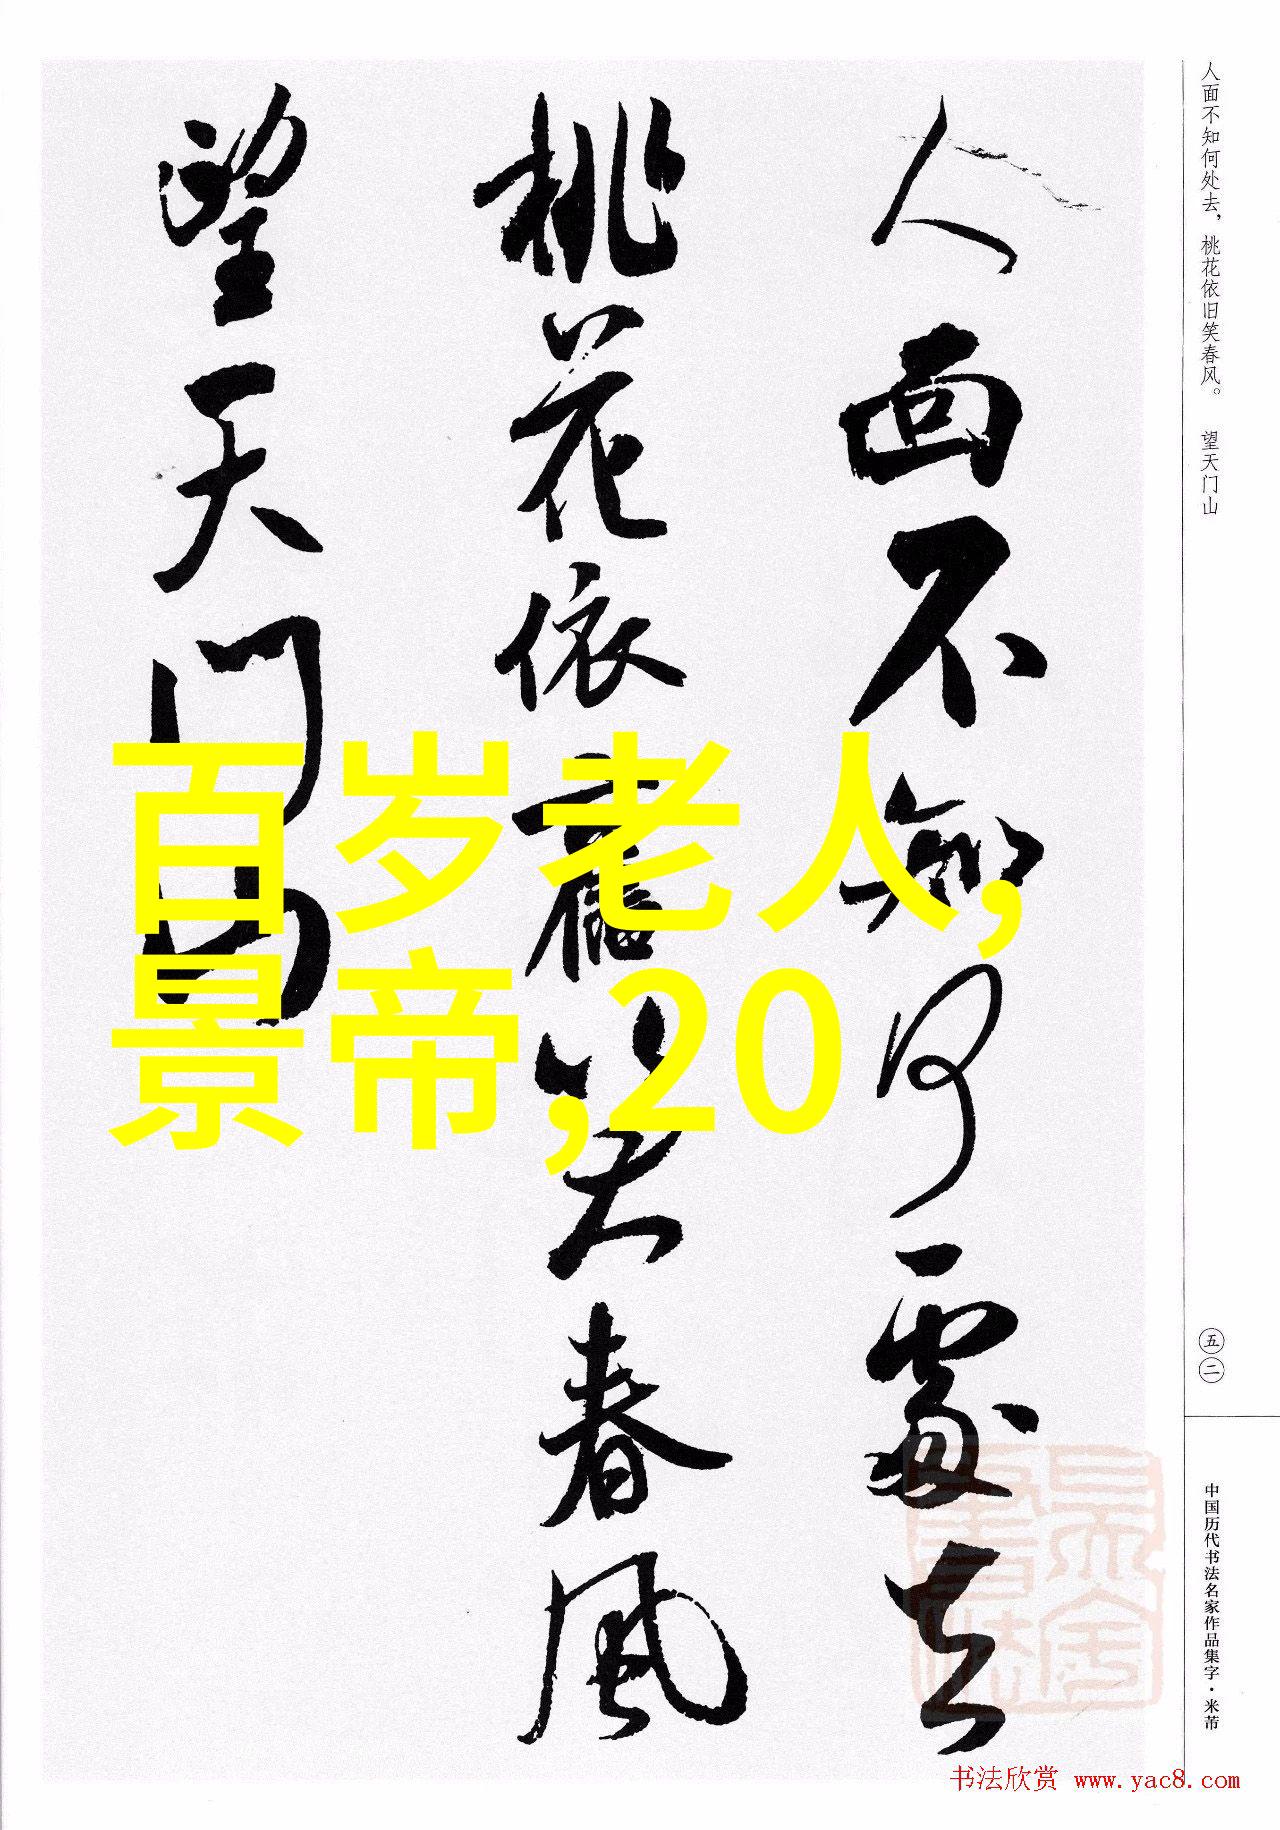 人面不知何處去
桃花依舊笑春風
望天门山
百岁老人,
景帝,20
人面不知何处去，桃花依旧笑春风。 望天门山
五二
中国历代书法名家作品集字·米芾
书法欣赏 www.yac8.com